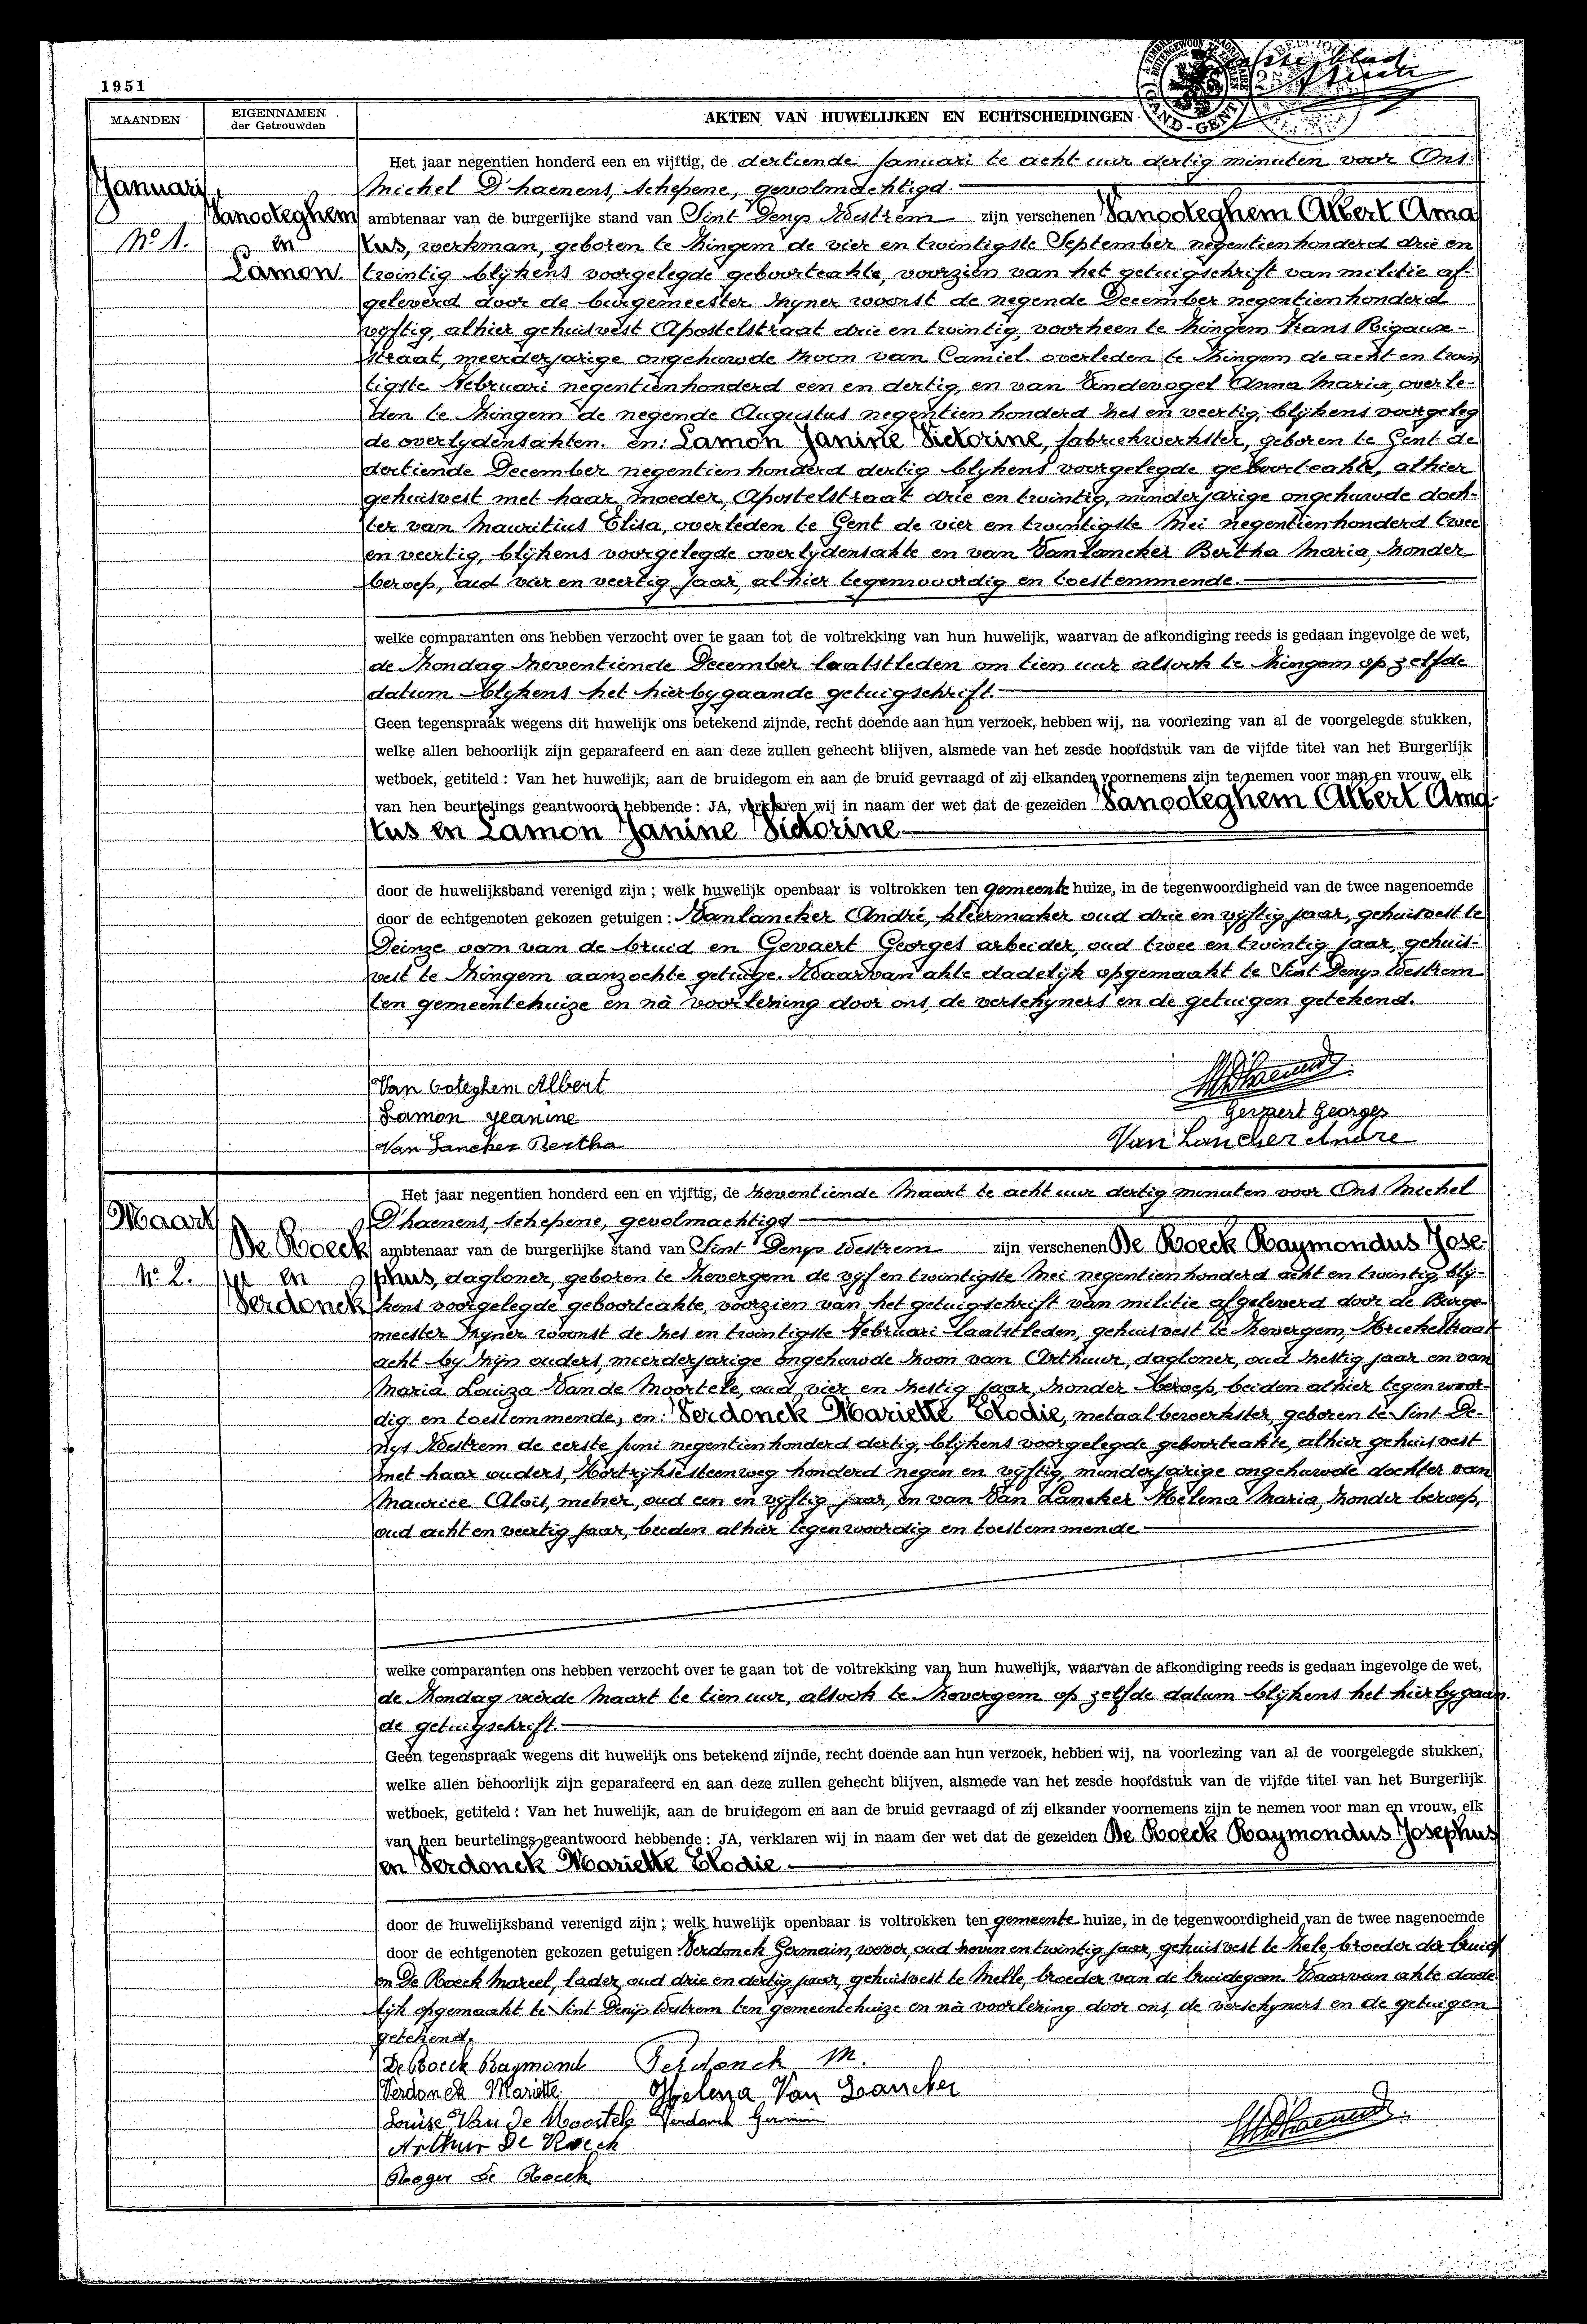 1951
MAANDEN
EIGENNAMEN
der Getrouwden
AKTEN VAN HUWELIJKEN EN ECHTSCHEIDINGEN
GAND-GENT
blad
Januari
Vanooteghem
No 1.
en
Lamon.
Het jaar negentien honderd een en vijftig, de dertiende Januari te acht uur dertig minuten voor Ons
Michel D'haenens, schepene, gevolmachtigd
ambtenaar van de burgerlijke stand van Sint Denys Westrem zijn verschenen Vanooteghem Albert Ama
tus, werkman, geboren te Zingem de vier en twintigste September negentienhonderd drie en
twintig blijkens voorgelegde geboorteakte, voorzien van het getuigschrift van militie af-
geleverd door de burgemeester zyner woonst de negende December negentienhonderd
vyftig, alhier gehuisvest Apostelstraat drie en twintig, voorheen te Zingem Frans Rigaux-
straat, meerderjarige ongehuwde zoon van Camiel overleden te Zingem de acht en twin
tigste Februari negentienhonderd een en dertig, en van Vandevogel Anna Maria, overle-
den te Zingem de negende Augustus negentien honderd zes en veertig, blijkens voorgeleg
de overlydensakten. en: Lamon Janine Victorine, fabriekwerkster, geboren te Gent de
dertiende December negentien honderd dertig blykens voorgelegde geboorteakte, alhier
gehuisvest met haar moeder, Apostelstraat drie en twintig, minderjarige ongehuwde doch-
ter van Mauritius Elisa, overleden te Gent de vier en twintigste Mei negentienhonderd twee
en veertig, blijkens voorgelegde overlydensakte en van Vanlancker Bertha Maria, zonder
beroep, oud vier en veertig jaar, alhier tegenwoordig en toestemmende.
welke comparanten ons hebben verzocht over te gaan tot de voltrekking van hun huwelijk, waarvan de afkondiging reeds is gedaan ingevolge de wet,
de Zondag zeventiende December laatstleden om tien uur alsook te Zingem op zelfde
datum blykens het hierbygaande getuigschrift.
Geen tegenspraak wegens dit huwelijk ons betekend zijnde, recht doende aan hun verzoek, hebben wij, na voorlezing van al de voorgelegde stukken,
welke allen behoorlijk zijn geparafeerd en aan deze zullen gehecht blijven, alsmede van het zesde hoofdstuk van de vijfde titel van het Burgerlijk
wetboek, getiteld : Van het huwelijk, aan de bruidegom en aan de bruid gevraagd of zij elkander voornemens zijn te nemen voor man en vrouw, elk
van hen beurtelings geantwoord hebbende : JA, verklaren wij in naam der wet dat de gezeiden Vanooteghem Albert Ama-
tus en Lamon Janine Victorine
door de huwelijksband verenigd zijn ; welk huwelijk openbaar is voltrokken ten gemeente huize, in de tegenwoordigheid van de twee nagenoemde
door de echtgenoten gekozen getuigen : Vanlancker André, kleermaker oud drie en vyftig jaar, gehuisvest te
Deinze oom van de bruid en Gevaert Georges arbeider, oud twee en twintig jaar, gehuis-
vest te Zingem aanzochte getuige. Waarvan akte dadelijk opgemaakt te Sint Denys Westrem
ten gemeentehuize en nà voorlezing door ons, de verschyners en de getuigen getekend.
Van Ooteghem Albert
Lamon Jeanine
Gevaert Georges
Van Lancker Bertha
Van Lancker Andre
Maart
De Roeck
No 2.
en
Verdonck
Het jaar negentien honderd een en vijftig, de zeventiende Maart te acht uur dertig minuten voor Ons Michel
D'haenens, schepene, gevolmachtigd
ambtenaar van de burgerlijke stand van Sint Denys Westrem zijn verschenen De Roeck Raymondus Jose-
phus, dagloner, geboren te Zevergem de vyf en twintigste Mei negentienhonderd acht en twintig bly-
kens voorgelegde geboorteakte, voorzien van het getuigschrift van militie afgeleverd door de Burge-
meester zyner woonst de zes en twintigste Februari laatstleden, gehuisvest te Zevergem, straat
acht by zijn ouders, meerderjarige ongehuwde zoon van Arthuur, dagloner, oud zestig jaar en van
Maria Louiza Van de Moortele, oud vier en zestig jaar, zonder beroep, beiden alhier tegenwoor-
dig en toestemmende, en: Verdonck Mariette Elodie, metaalbewerkster, geboren te Sint De-
nys Westrem de eerste Juni negentienhonderd dertig, blijkens voorgelegde geboorteakte, alhier gehuisvest
met haar ouders, Kortrijksesteenweg honderd negen en vyftig, minderjarige ongehuwde dochter van
Maurice Aloïs, metser, oud een en vyftig jaar, en van Van Lancker Helena Maria, zonder beroep,
oud acht en veertig jaar, beiden alhier tegenwoordig en toestemmende
welke comparanten ons hebben verzocht over te gaan tot de voltrekking van hun huwelijk, waarvan de afkondiging reeds is gedaan ingevolge de wet,
de Zondag vierde Maart te tien uur, alsook te Zevergem op zelfde datum blijkens het hierbygaan-
de getuigschrift.
Geen tegenspraak wegens dit huwelijk ons betekend zijnde, recht doende aan hun verzoek, hebben wij, na voorlezing van al de voorgelegde stukken,
welke allen behoorlijk zijn geparafeerd en aan deze zullen gehecht blijven, alsmede van het zesde hoofdstuk van de vijfde titel van het Burgerlijk
wetboek, getiteld : Van het huwelijk, aan de bruidegom en aan de bruid gevraagd of zij elkander voornemens zijn te nemen voor man en vrouw, elk
van hen beurtelings geantwoord hebbende : JA, verklaren wij in naam der wet dat de gezeiden De Roeck Raymondus Josephus
en Verdonck Mariette Elodie
door de huwelijksband verenigd zijn ; welk huwelijk openbaar is voltrokken ten gemeente huize, in de tegenwoordigheid van de twee nagenoemde
door de echtgenoten gekozen getuigen : Verdonck Germain, wever, oud zeven en twintig jaar, gehuisvest te Zele, broeder der bruid
en De Roeck Marcel, lader, oud drie en dertig jaar, gehuisvest te Melle, broeder van de bruidegom. Waarvan akte dade
lijk opgemaakt te Sint Denijs Westrem ten gemeentehuize en nà voorlezing door ons, de verschyners en de getuigen
getekend.
De Roeck Raymond Verdonck M.
Verdonck Mariette Helena Van Lancker
Louise Van De Moortele Verdonck Germain
Arthur De Roeck
Roger De Roeck